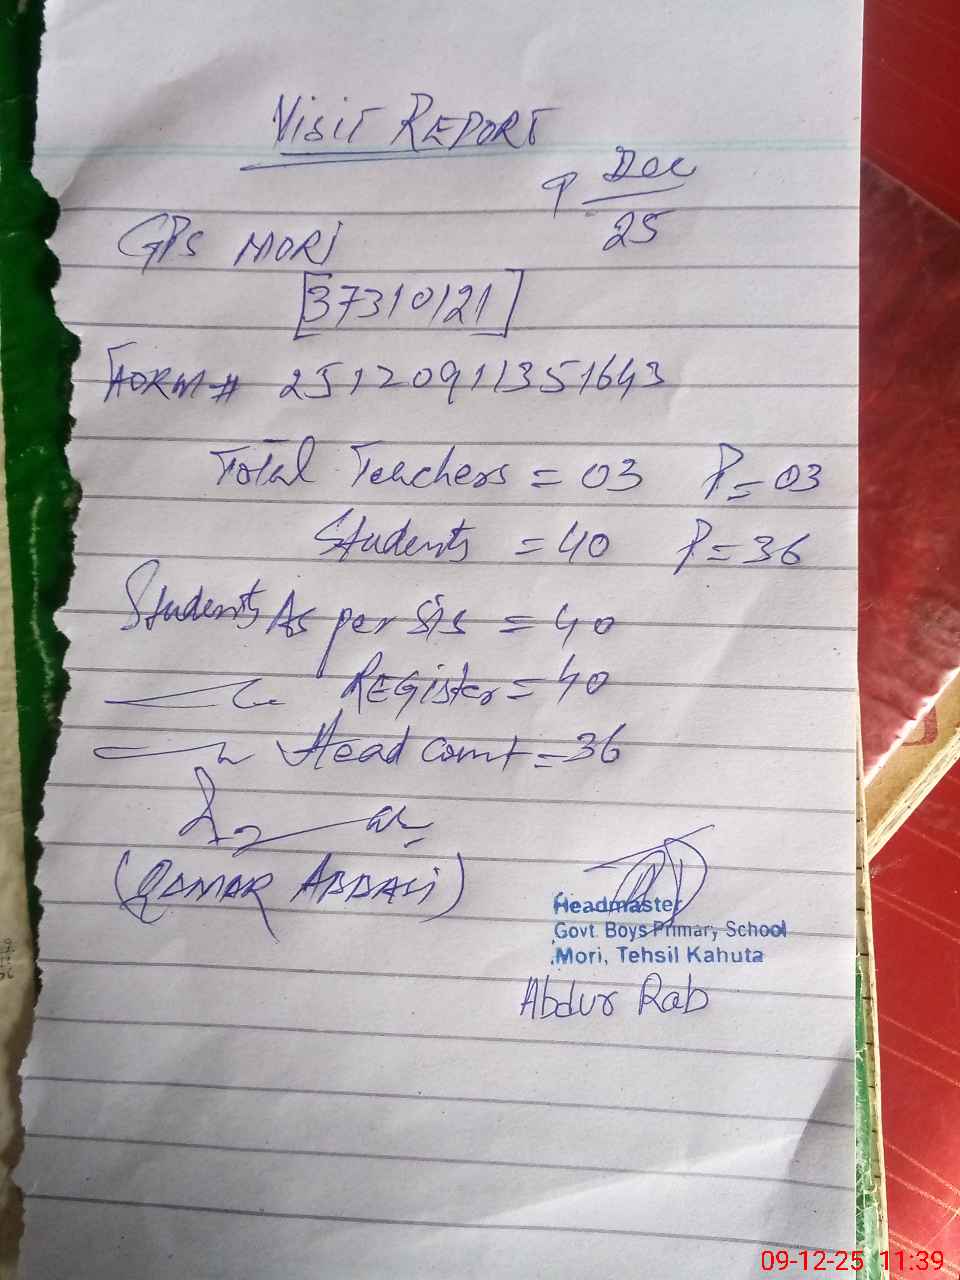 Visit REPORT
9 Dec
25
GPS MORI
[37310121]
FORM # 25120911351643
Total Teachers = 03 P = 03
Students = 40 P = 36
Students As per SIS = 40
REGister = 40
Head count = 36
(QAMAR ABBASI)
Headmaster
Govt. Boys Primary School
Mori, Tehsil Kahuta
Abdur Rab
09-12-25 11:39